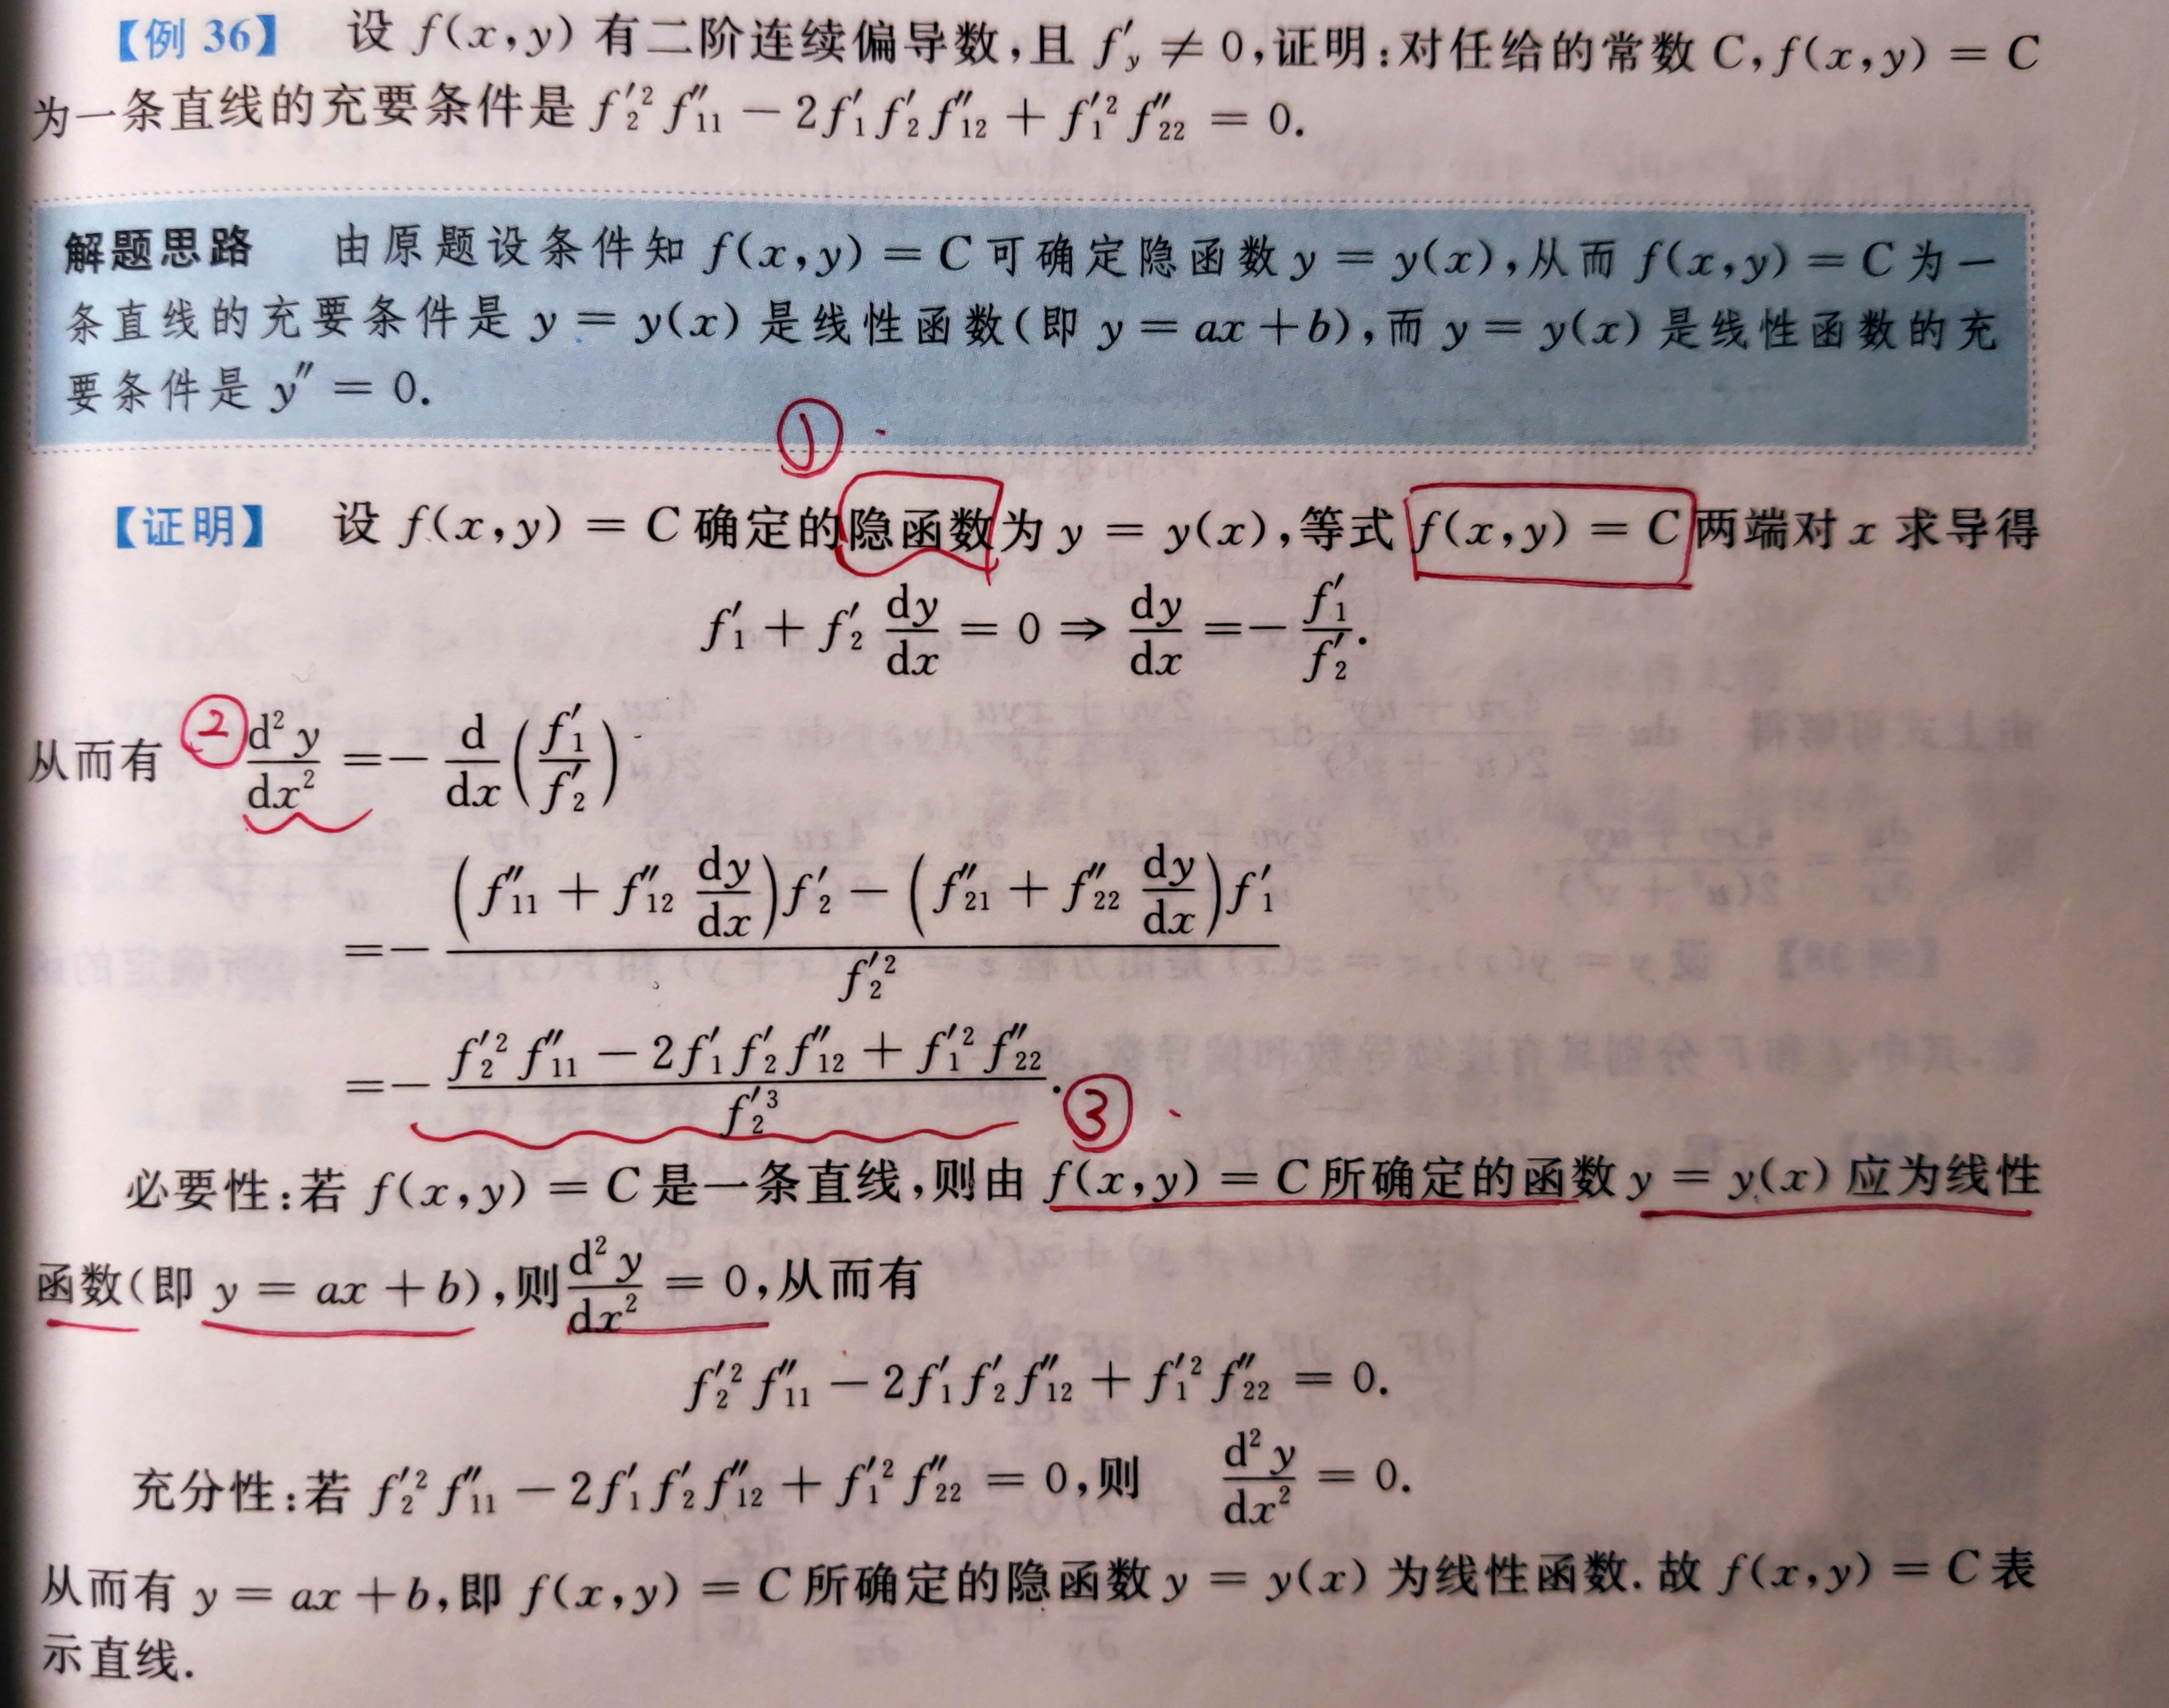 【例 36】 设 f(x,y) 有二阶连续偏导数,且 f′_y ≠ 0,证明:对任给的常数 C,f(x,y) = C
为一条直线的充要条件是 f′₂² f″₁₁ − 2f′₁ f′₂ f″₁₂ + f′₁² f″₂₂ = 0.
解题思路 由原题设条件知 f(x,y) = C 可确定隐函数 y = y(x),从而 f(x,y) = C 为一
条直线的充要条件是 y = y(x) 是线性函数(即 y = ax + b),而 y = y(x) 是线性函数的充
要条件是 y″ = 0.
①
【证明】 设 f(x,y) = C 确定的隐函数为 y = y(x),等式 f(x,y) = C 两端对 x 求导得
f′₁ + f′₂ dy/dx = 0 ⇒ dy/dx = − f′₁/f′₂.
从而有 ② d²y/dx² = − d/dx (f′₁/f′₂)
= − ((f″₁₁ + f″₁₂ dy/dx) f′₂ − (f″₂₁ + f″₂₂ dy/dx) f′₁)/f′₂²
= − (f′₂² f″₁₁ − 2f′₁ f′₂ f″₁₂ + f′₁² f″₂₂)/f′₂³.
③
必要性:若 f(x,y) = C 是一条直线,则由 f(x,y) = C 所确定的函数 y = y(x) 应为线性
函数(即 y = ax + b),则 d²y/dx² = 0,从而有
f′₂² f″₁₁ − 2f′₁ f′₂ f″₁₂ + f′₁² f″₂₂ = 0.
充分性:若 f′₂² f″₁₁ − 2f′₁ f′₂ f″₁₂ + f′₁² f″₂₂ = 0,则 d²y/dx² = 0.
从而有 y = ax + b,即 f(x,y) = C 所确定的隐函数 y = y(x) 为线性函数. 故 f(x,y) = C 表
示直线.